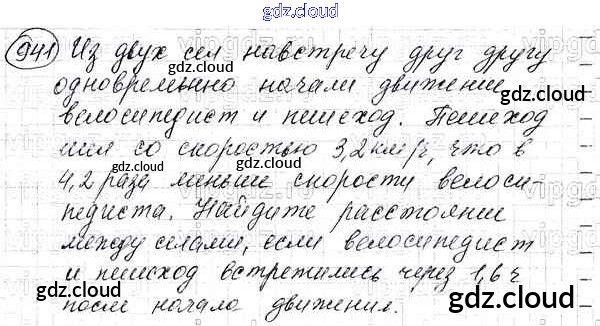 gdz.cloud
941 Из двух сел навстречу друг другу
gdz.cloud
одновременно начали движение
gdz.cloud
велосипедист и пешеход. Пешеход
gdz.cloud
шел со скоростью 3,2 км/ч, что в
gdz.cloud
4,2 раза меньше скорости велоси-
gdz.cloud
педиста. Найдите расстояние
gdz.cloud
между селами, если велосипедист
и пешеход встретились через 1,6 ч
gdz.cloud
после начала движения.
gdz.cloud